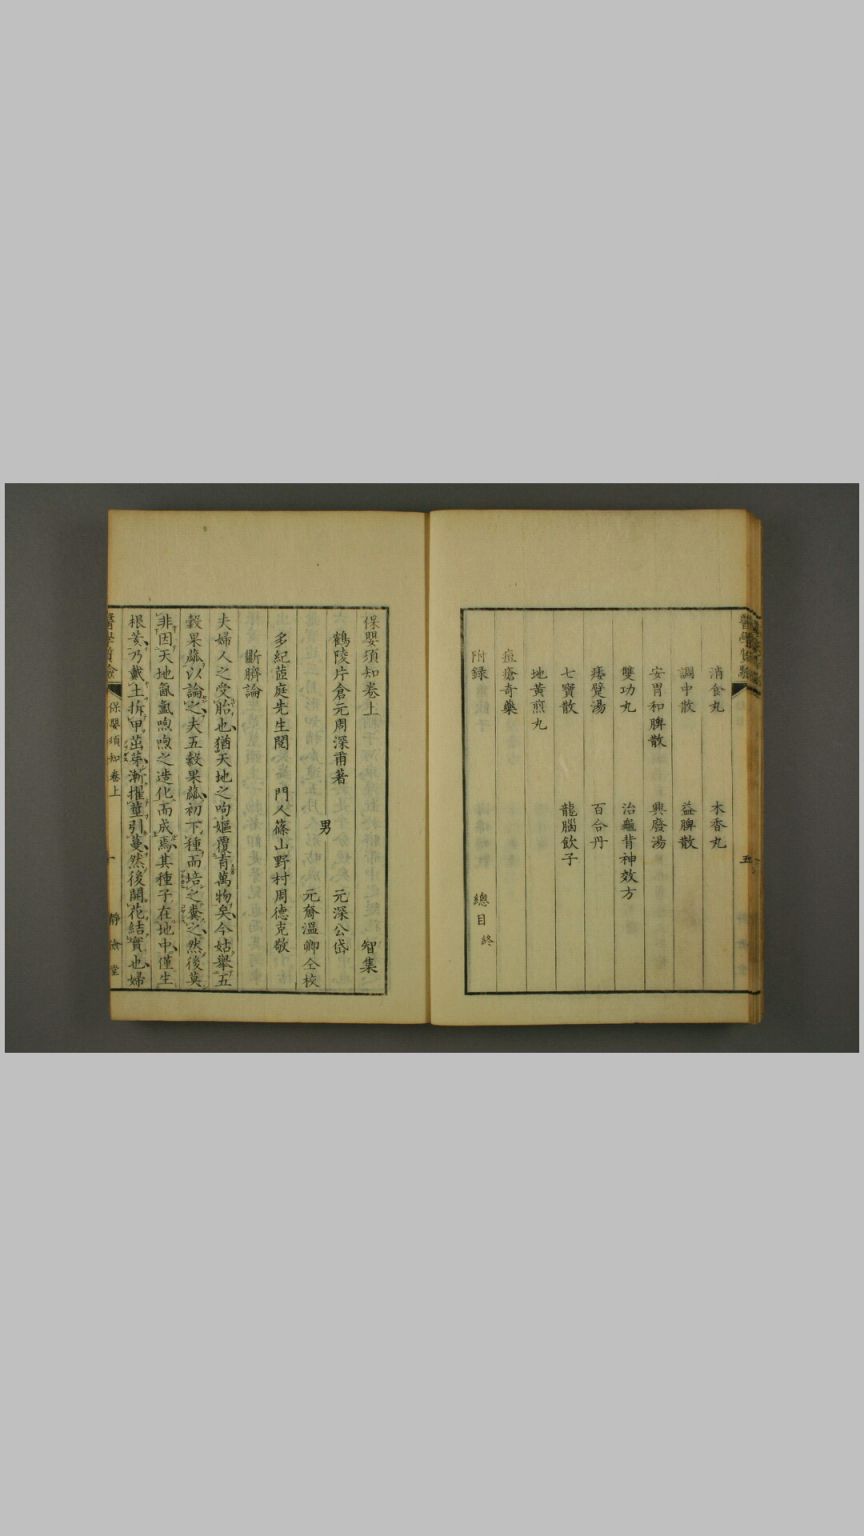 消食丸 木香丸
調中散 益脾散
安胃和脾散 興廢湯
雙功丸 治龜背神效方
痿躄湯 百合丹
七寶散 龍腦飲子
地黃煎丸
痘瘡奇藥
附録 總目終
五
保嬰須知卷上 智集
鶴陵片倉元周深甫著 男 元深公岱
元奝溫卿仝校
多紀茝庭先生閱 門人篠山野村周德克敬
斷臍論
夫婦人之受胎也猶天地之呴嫗覆育萬物矣今姑舉五
穀果蓏以論之夫五穀果蓏初下種而培之糞之然後莫
非因天地氤氳喣喣之造化而成焉其種子在地中僅生
根荄乃戴土拆甲茁芽漸擢莖引蔓然後開花結實也婦
保嬰須知卷上 一 靜儉堂